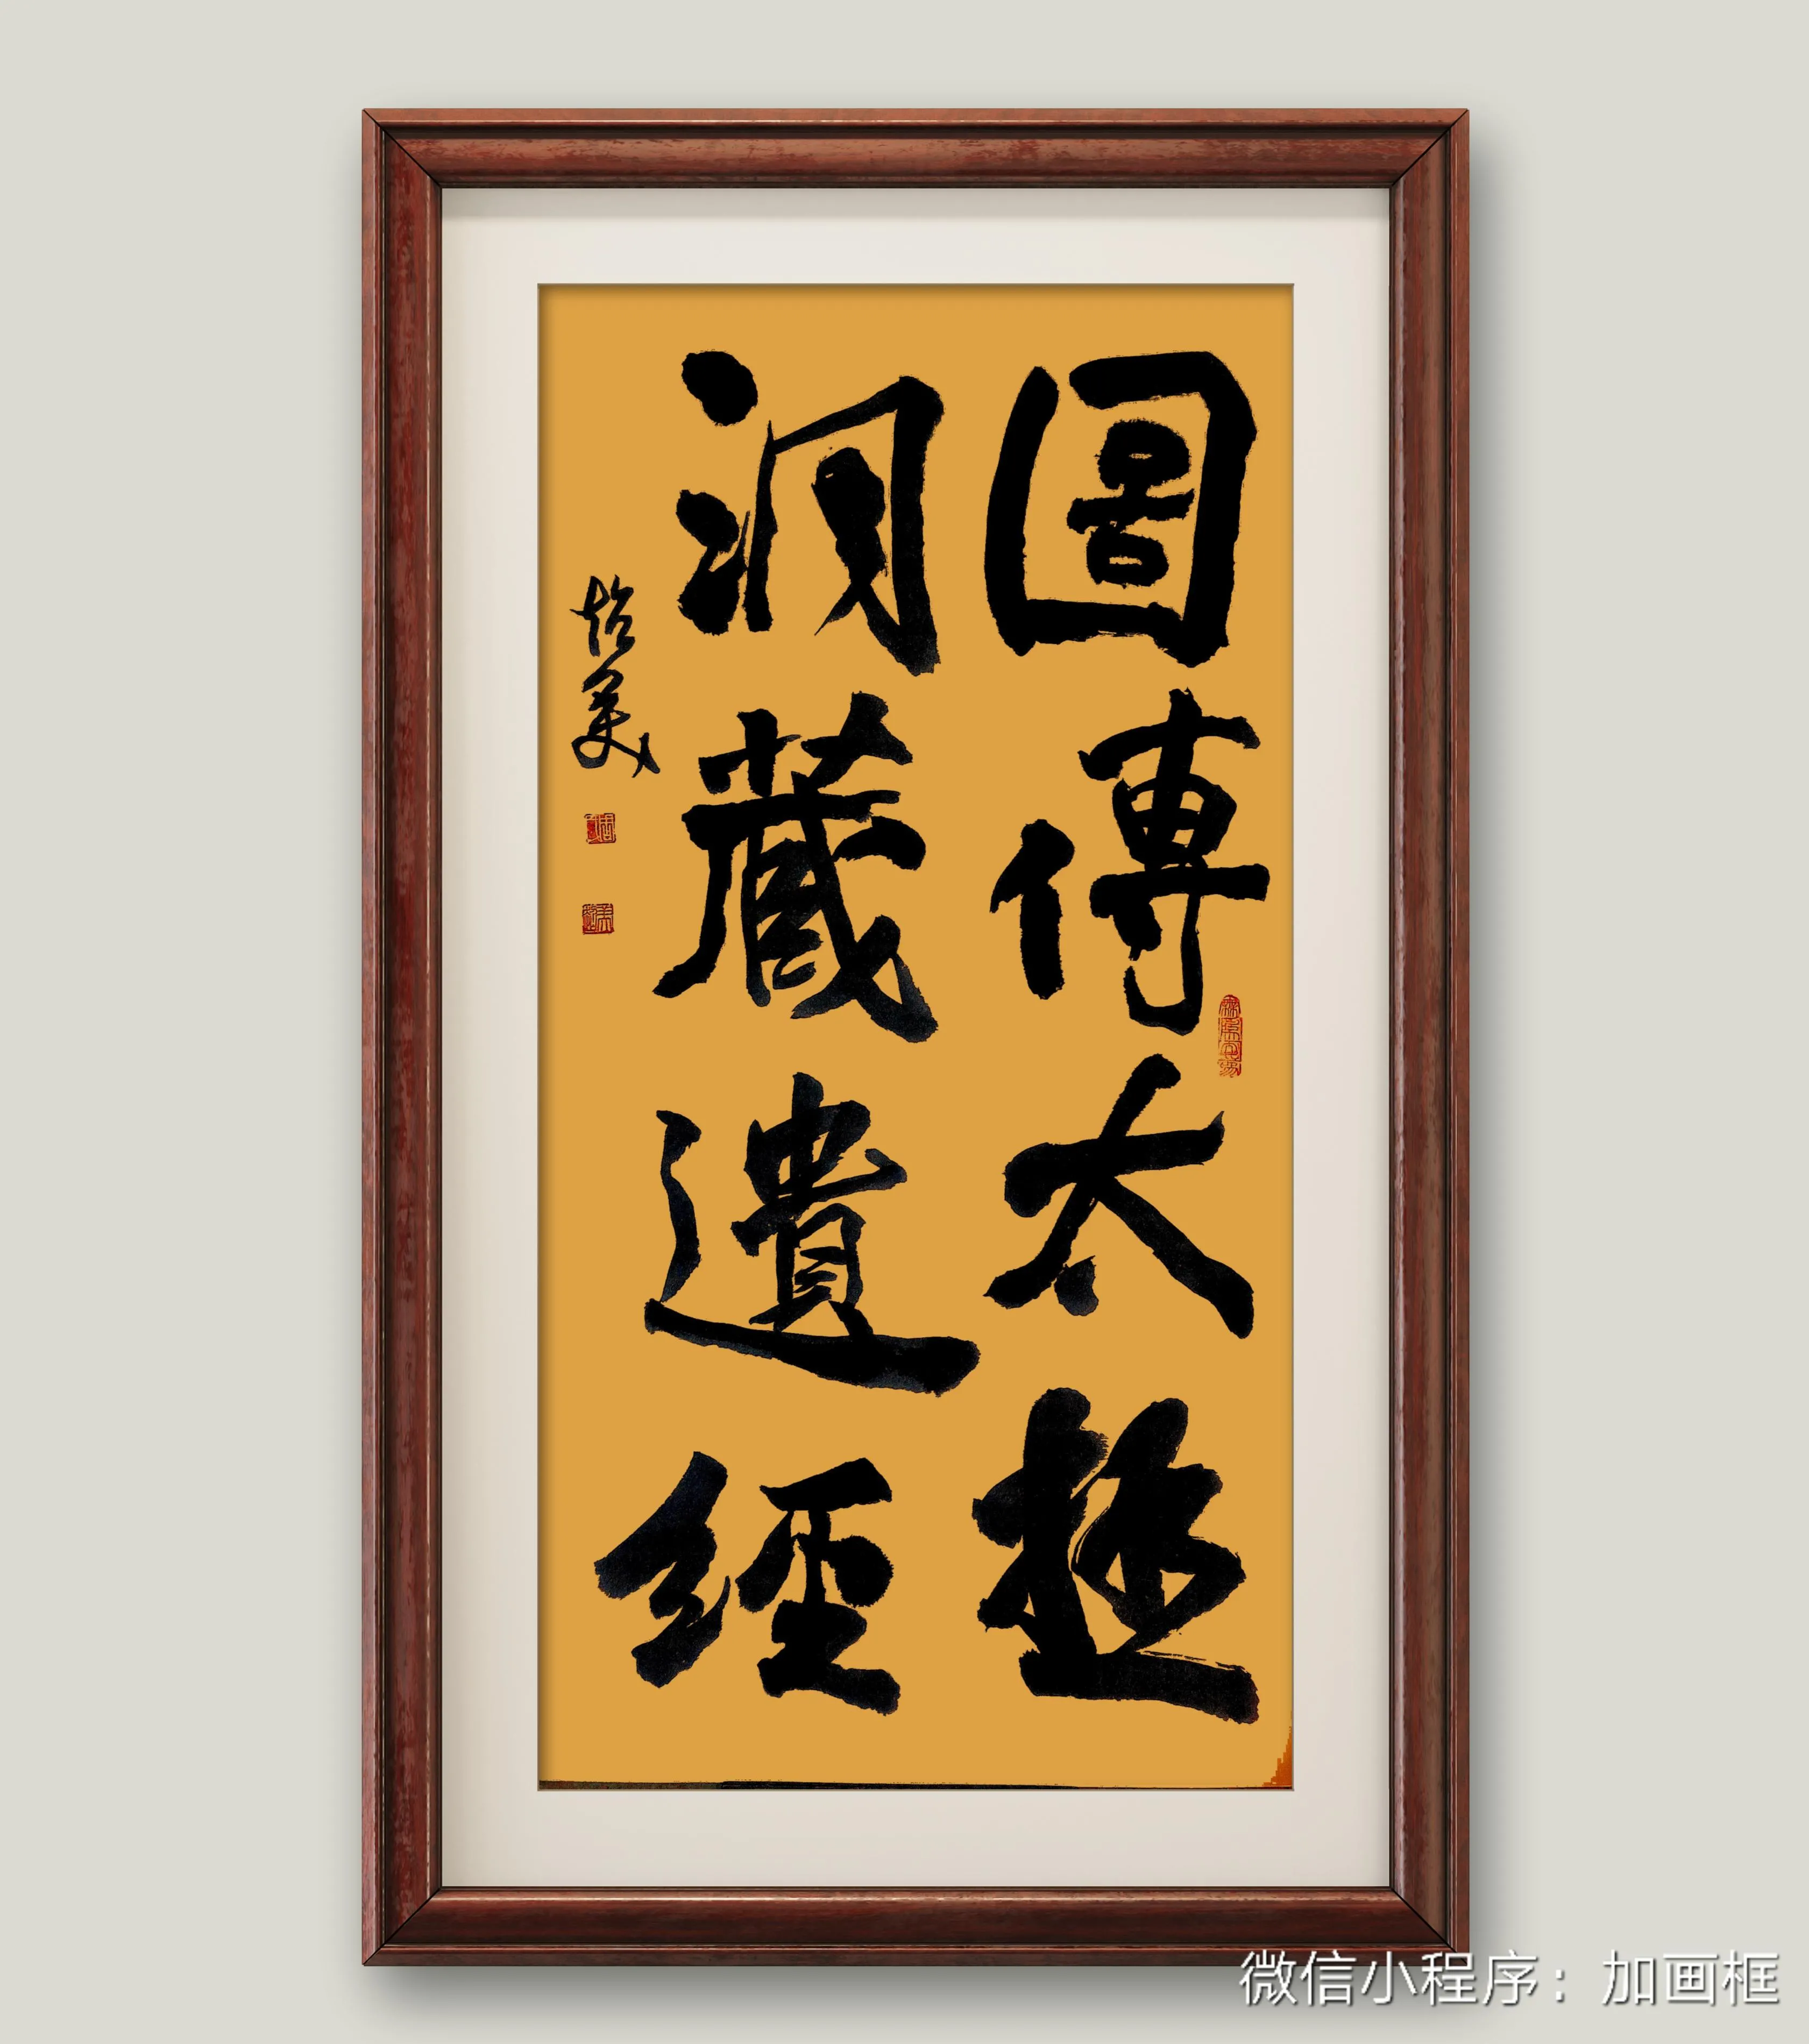 圖傳太極
藏遺經
美
微信小程序：加画框